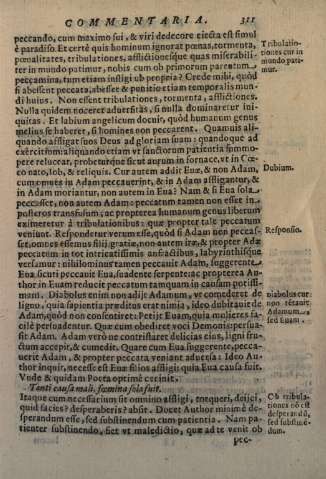 COMMENTARIA. 311
peccando, cum maximo sui, & viri dedecore eiecta est simul
è paradiso. Et certè quis hominum ignorat pœnas, tormenta,
pœnalitates, tribulationes, afflictionesque quas miserabili-
ter in mundo patimur, nobis cum ob primorum parentum
peccamina, tum etiam insligi ob propria? Crede mihi, quòd
si abessent peccata, abesset & punitio etiam temporalis mun-
di huius. Non essent tribulationes, tormenta, afflictiones.
Nulla quidem noceret aduersitas, si nulla dominaretur ini-
quitas. Et labium angelicum docuit, quòd humanum genus
meliùs se haberet, si homines non peccarent. Quamuis ali-
quando affligat suos Deus ad gloriam suam: quandoque ad
exercitium: aliquando etiam vt sanctorum patientia summo-
pere reluceat, probeturque sicut aurum in fornace, vt in Cœ-
co nato, Iob, & reliquis. Cur autem addit Euæ, & non Adam,
cum omnes in Adam peccauerint, & in Adam affligantur, &
in Adam moriantur, non autem in Eua? Nam & si Eua sola
peccasset, non autem Adam: peccatum tamen non esset in
posteros transfusum, ac propterea humanum genus liberum
eximeretur à tribulationibus: quæ propter tale peccatum
veniunt. Respondetur verum esse, quòd si Adam non peccas-
set, omnes essemus filij gratiæ, non autem iræ, & propter Adæ
peccatum in tot intricatissimis anfractibus, labyrinthisque
versamur: nihilominus tamen peccauit Adam, suggerente
Eua, sicuti peccauit Eua, suadente serpente: ac propterea Au-
thor in Euam reducit peccatum tamquam in causam potissi-
mam. Diabolus enim non adijt Adamum, vt comederet de
ligno, quia sapientia præditus erat nimia, ideo dubitauit de
Adam, quòd non consentiret: Petijt Euam, quia mulieres fa-
cilè persuadentur. Quæ cum obediret voci Demonij: persua-
sit Adam. Adam verò ne contristaret delicias eius, ligni fru-
ctum accepit, & comedit. Quare cum Eua suggerente, pecca-
uerit Adam, & propter peccata veniant aduersa: Ideo Au-
thor inquit, necesse est Eua filios affligi quia Eua causa fuit.
Vnde & quidam Poeta optimè cecinit.
Tanti causa mali, fœmina sola fuit.
Itaque cum necessarium sit omnino affligi, torqueri, deijci,
quid facies? desperaberis? absit. Docet Author minimè de-
sperandum esse, sed substinendum cum patientia. Nam pa-
tienter substinendo, fiet vt maledictio, quæ ad te venit ob
pec-
Tribulatio-
tiones cur in
mundo pati-
mur.
Dubium.
Responsio.
Diabolus cur
non tētauit
Adamum
sed Euam.
Ob tribula-
tiones nō est
desperandū,
sed substinē-
dum.